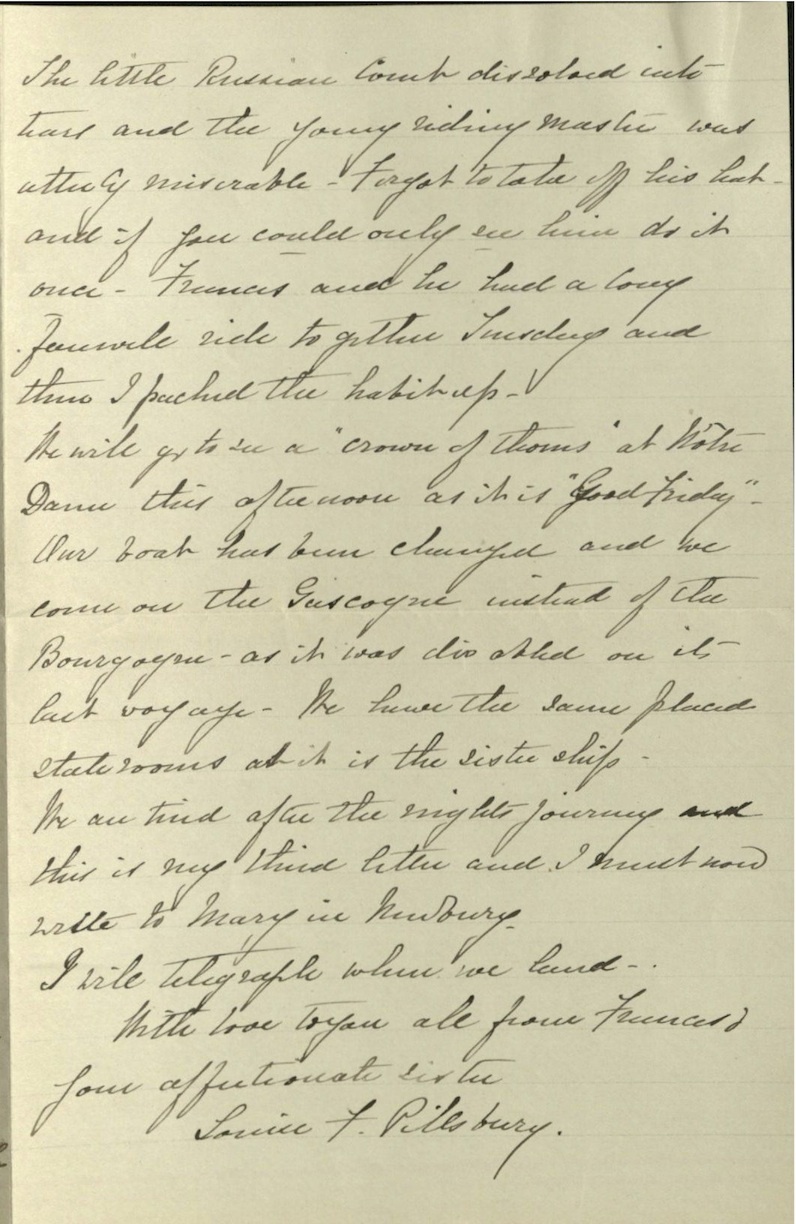 The little Russian Count dissolved into
tears and the young riding master was
utterly miserable - Forgot to take off his hat -
and if you could only see him do it
once - Frances and he had a long
farewell ride together Tuesday and
then I packed the habit up -
We will go to see a "crown of thorns" at Nôtre
Dame this afternoon as it is "Good Friday" -
Our boat has been changed and we
come on the Gascogne instead of the
Bourgogne - as it was disabled on its
last voyage - We have the same placed
staterooms as it is the sister ship -
We are tired after the nights journey and
this is my third letter and I must now
write to Mary in Newbury -
I will telegraph when we land - .
With love to you all from Frances &
Your affectionate sister
Louise F. Pillsbury.